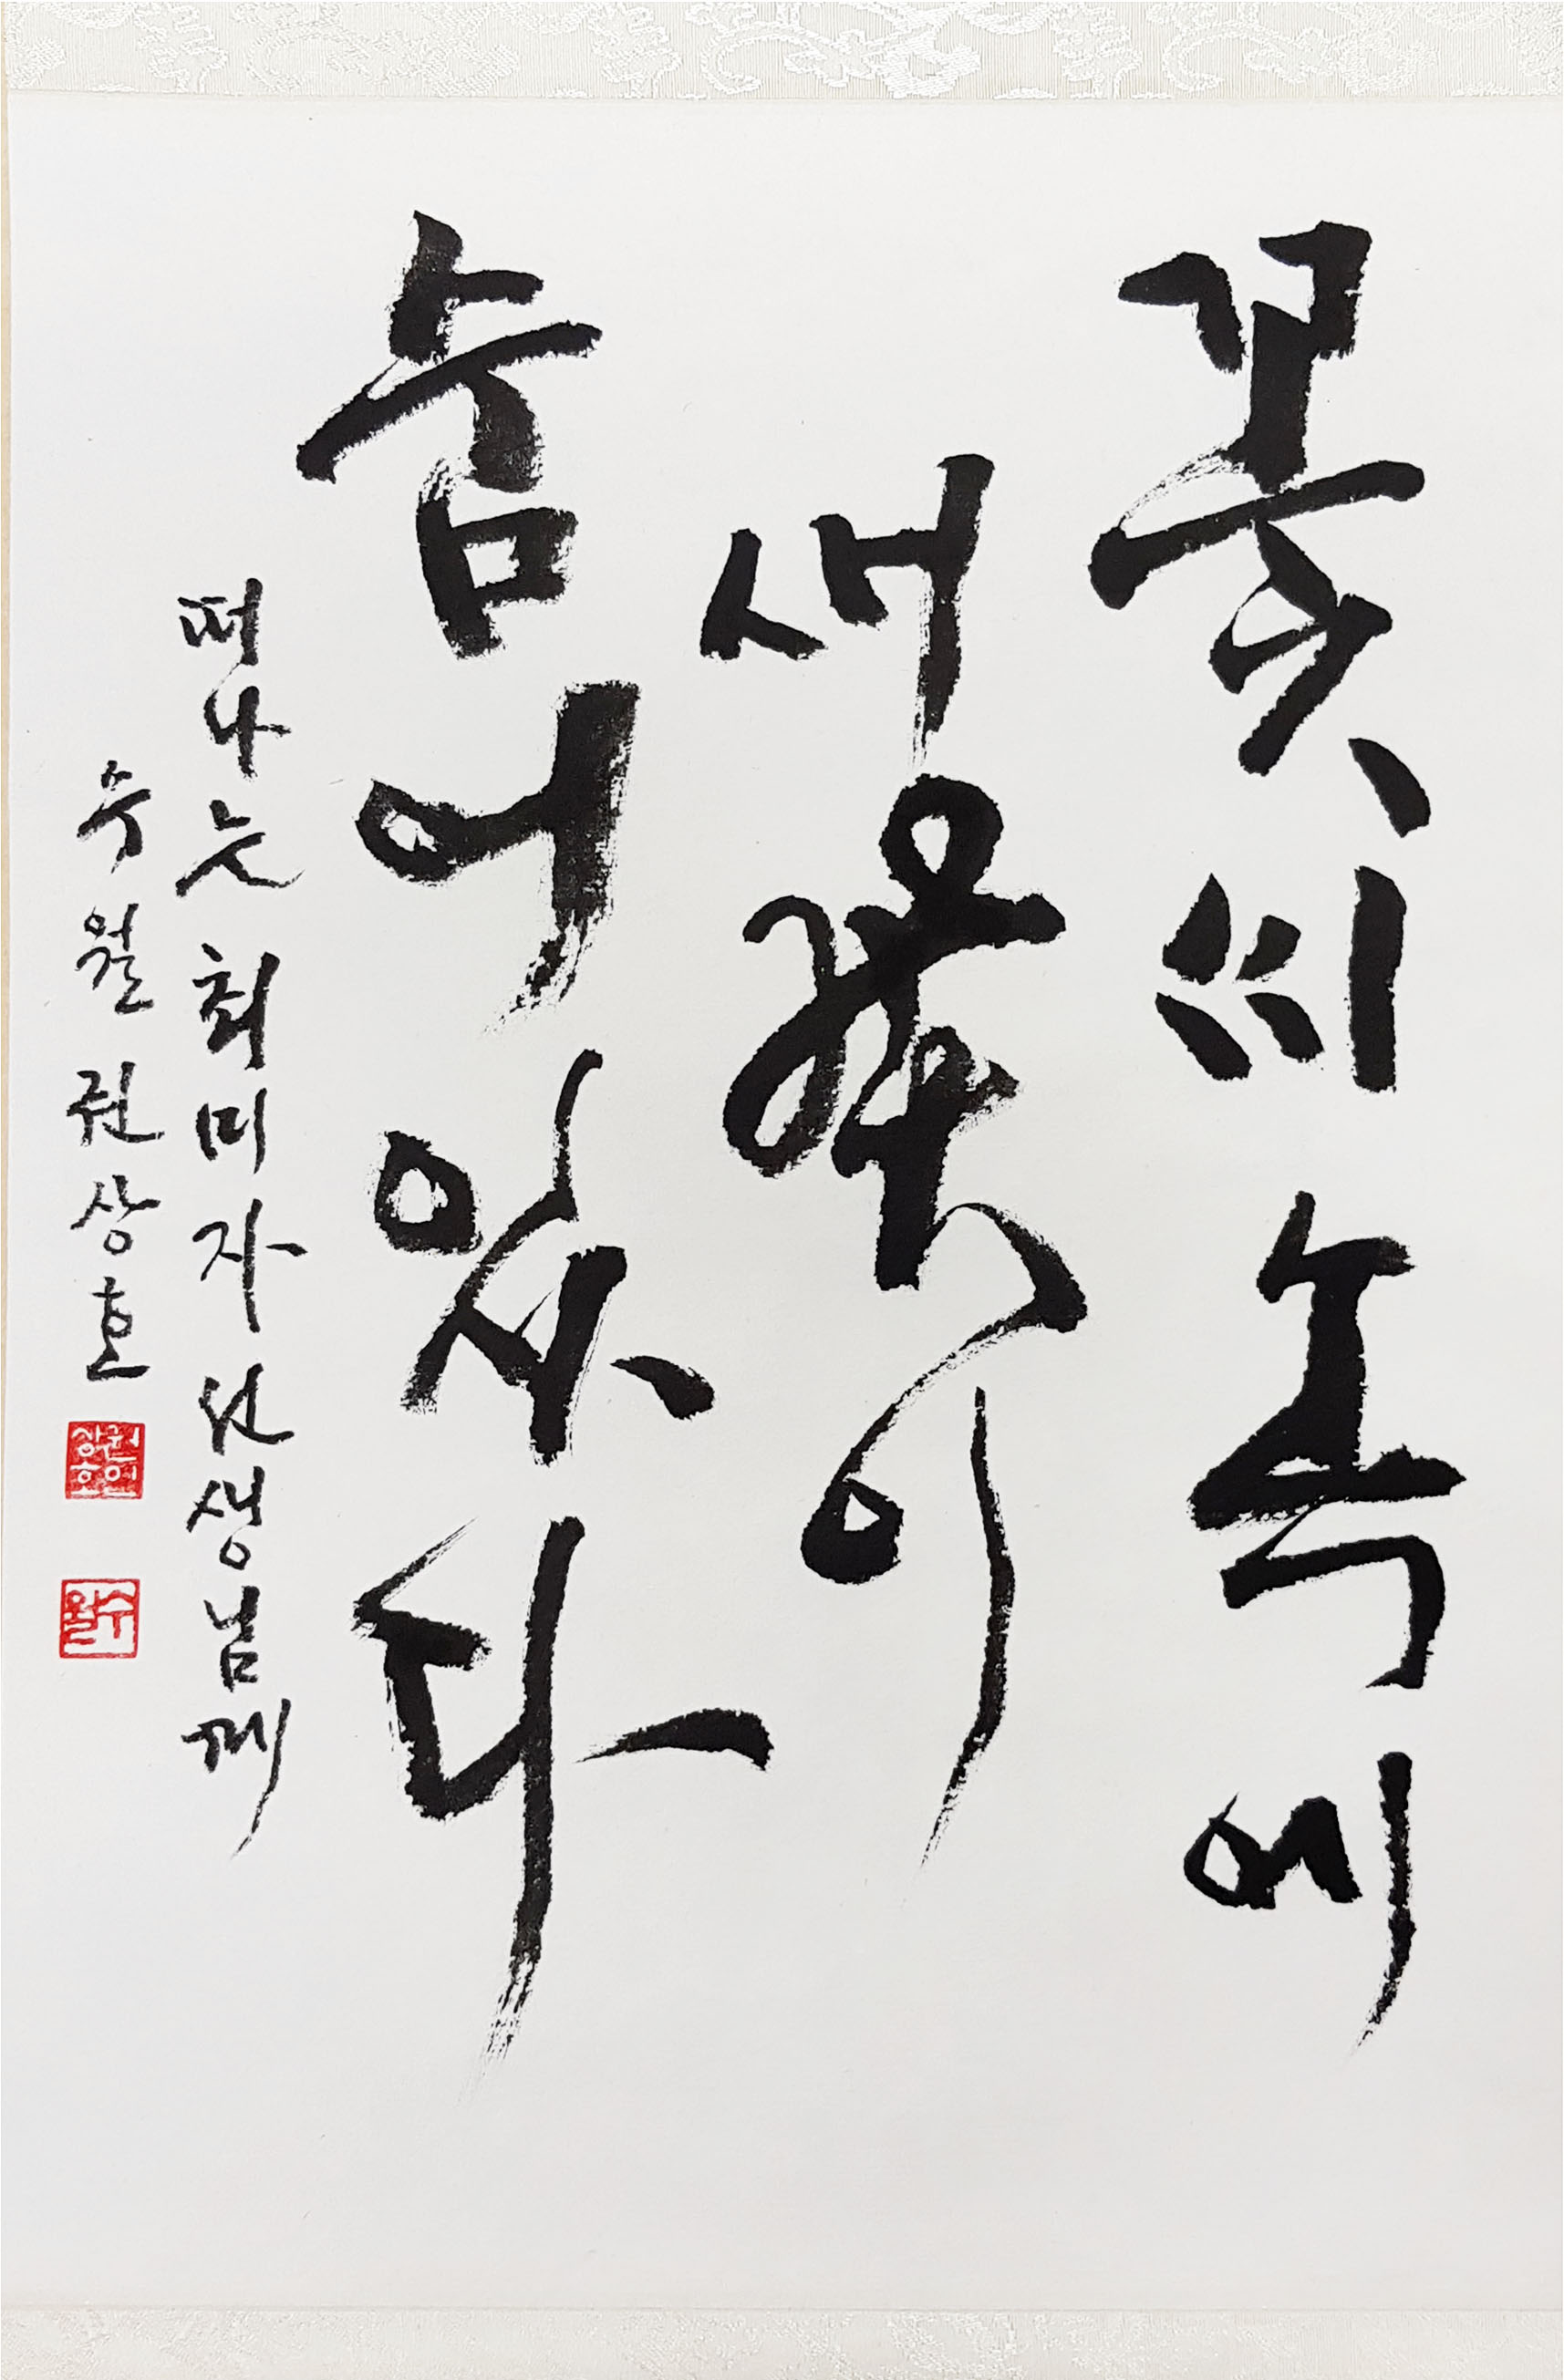 꽃씨 속에
새 이
숨어있다
떠나는 최미자 선생님께
수월 권상호
권상호인
수월